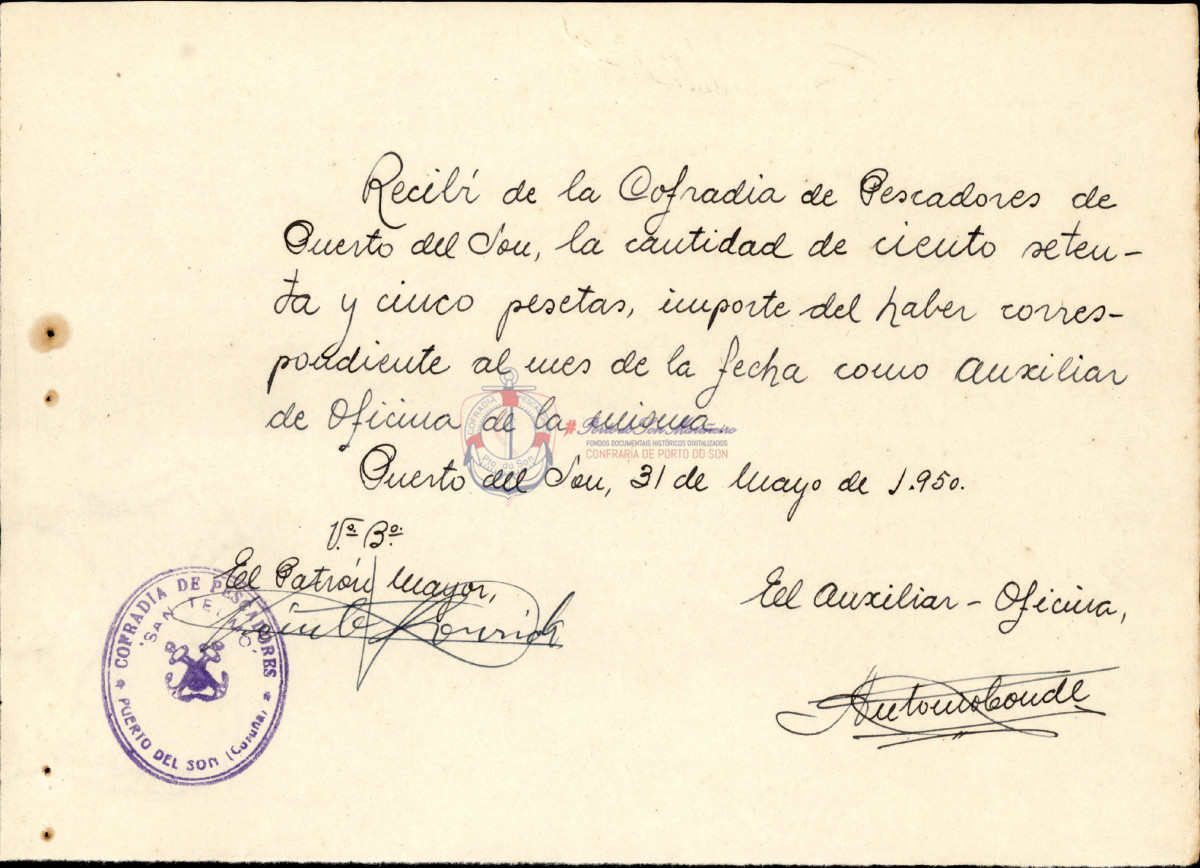 Recibí de la Cofradia de Pescadores de
Puerto del Son, la cantidad de ciento seten-
ta y cinco pesetas, importe del haber corres-
pondiente al mes de la fecha como Auxiliar
de Oficina de la misma.
COFRADIA PESCADORES
Pto. do Son
#Porto do Son Mariñeiro
FONDOS DOCUMENTAIS HISTÓRICOS DIXITALIZADOS
CONFRARÍA DE PORTO DO SON
Puerto del Son, 31 de Mayo de 1.950.
Vº Bº
El Patrón Mayor,
El Auxiliar-Oficina,
Antonio Conde
COFRADIA DE PESCADORES
"SAN TELMO"
PUERTO DEL SON (Coruña)